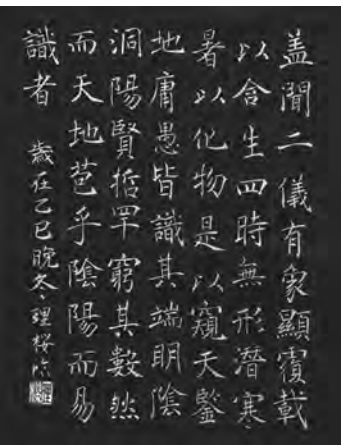 盖聞二儀有象顯覆載
以含生四時無形潜寒
暑以化物是以窺天鑒
地庸愚皆識其端明陰
洞陽賢哲罕窮其數然
而天地苞乎陰陽而易
識者
歲在乙巳晚冬理桜